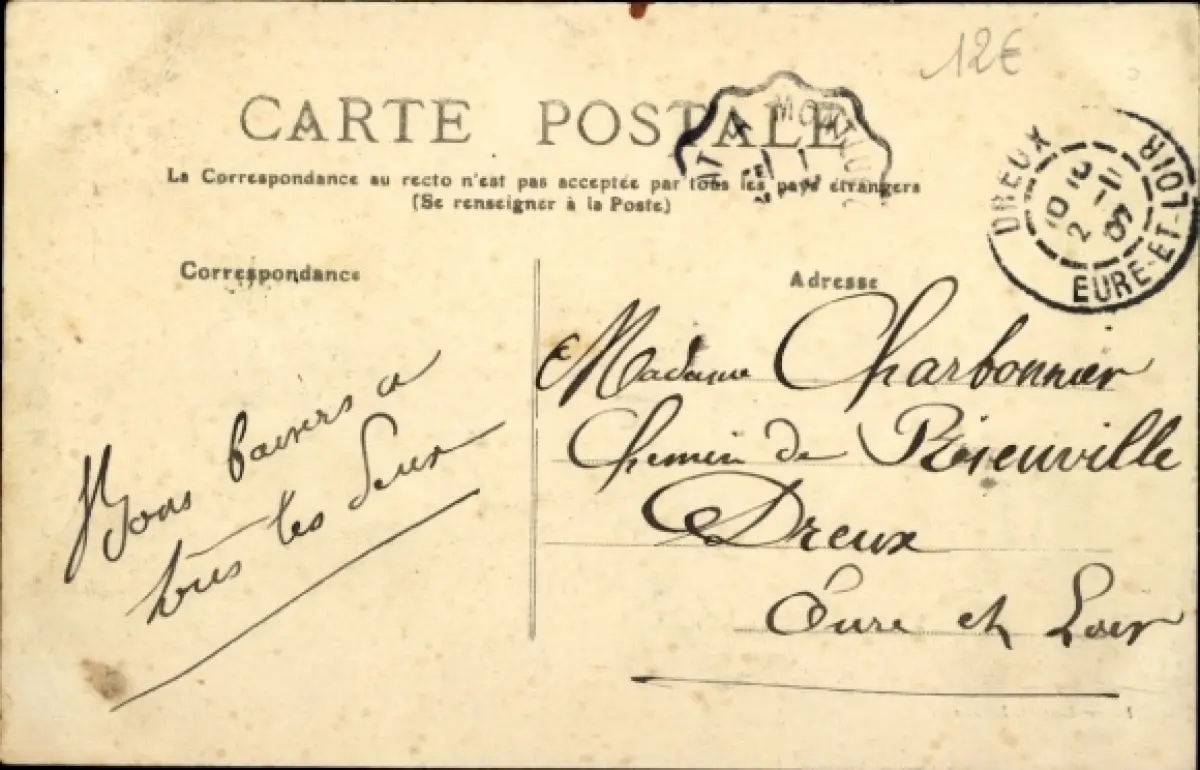 12€
CARTE POSTALE
La Correspondance au recto n'est pas acceptée par tous les pays étrangers
(Se renseigner à la Poste)
DREUX
EURE-ET-LOIR
2 - 11
09
Correspondance
Adresse
Bons baisers a
tous les deux
Madame Charbonnier
Chemin de Rieuville
Dreux
Eure et Loir